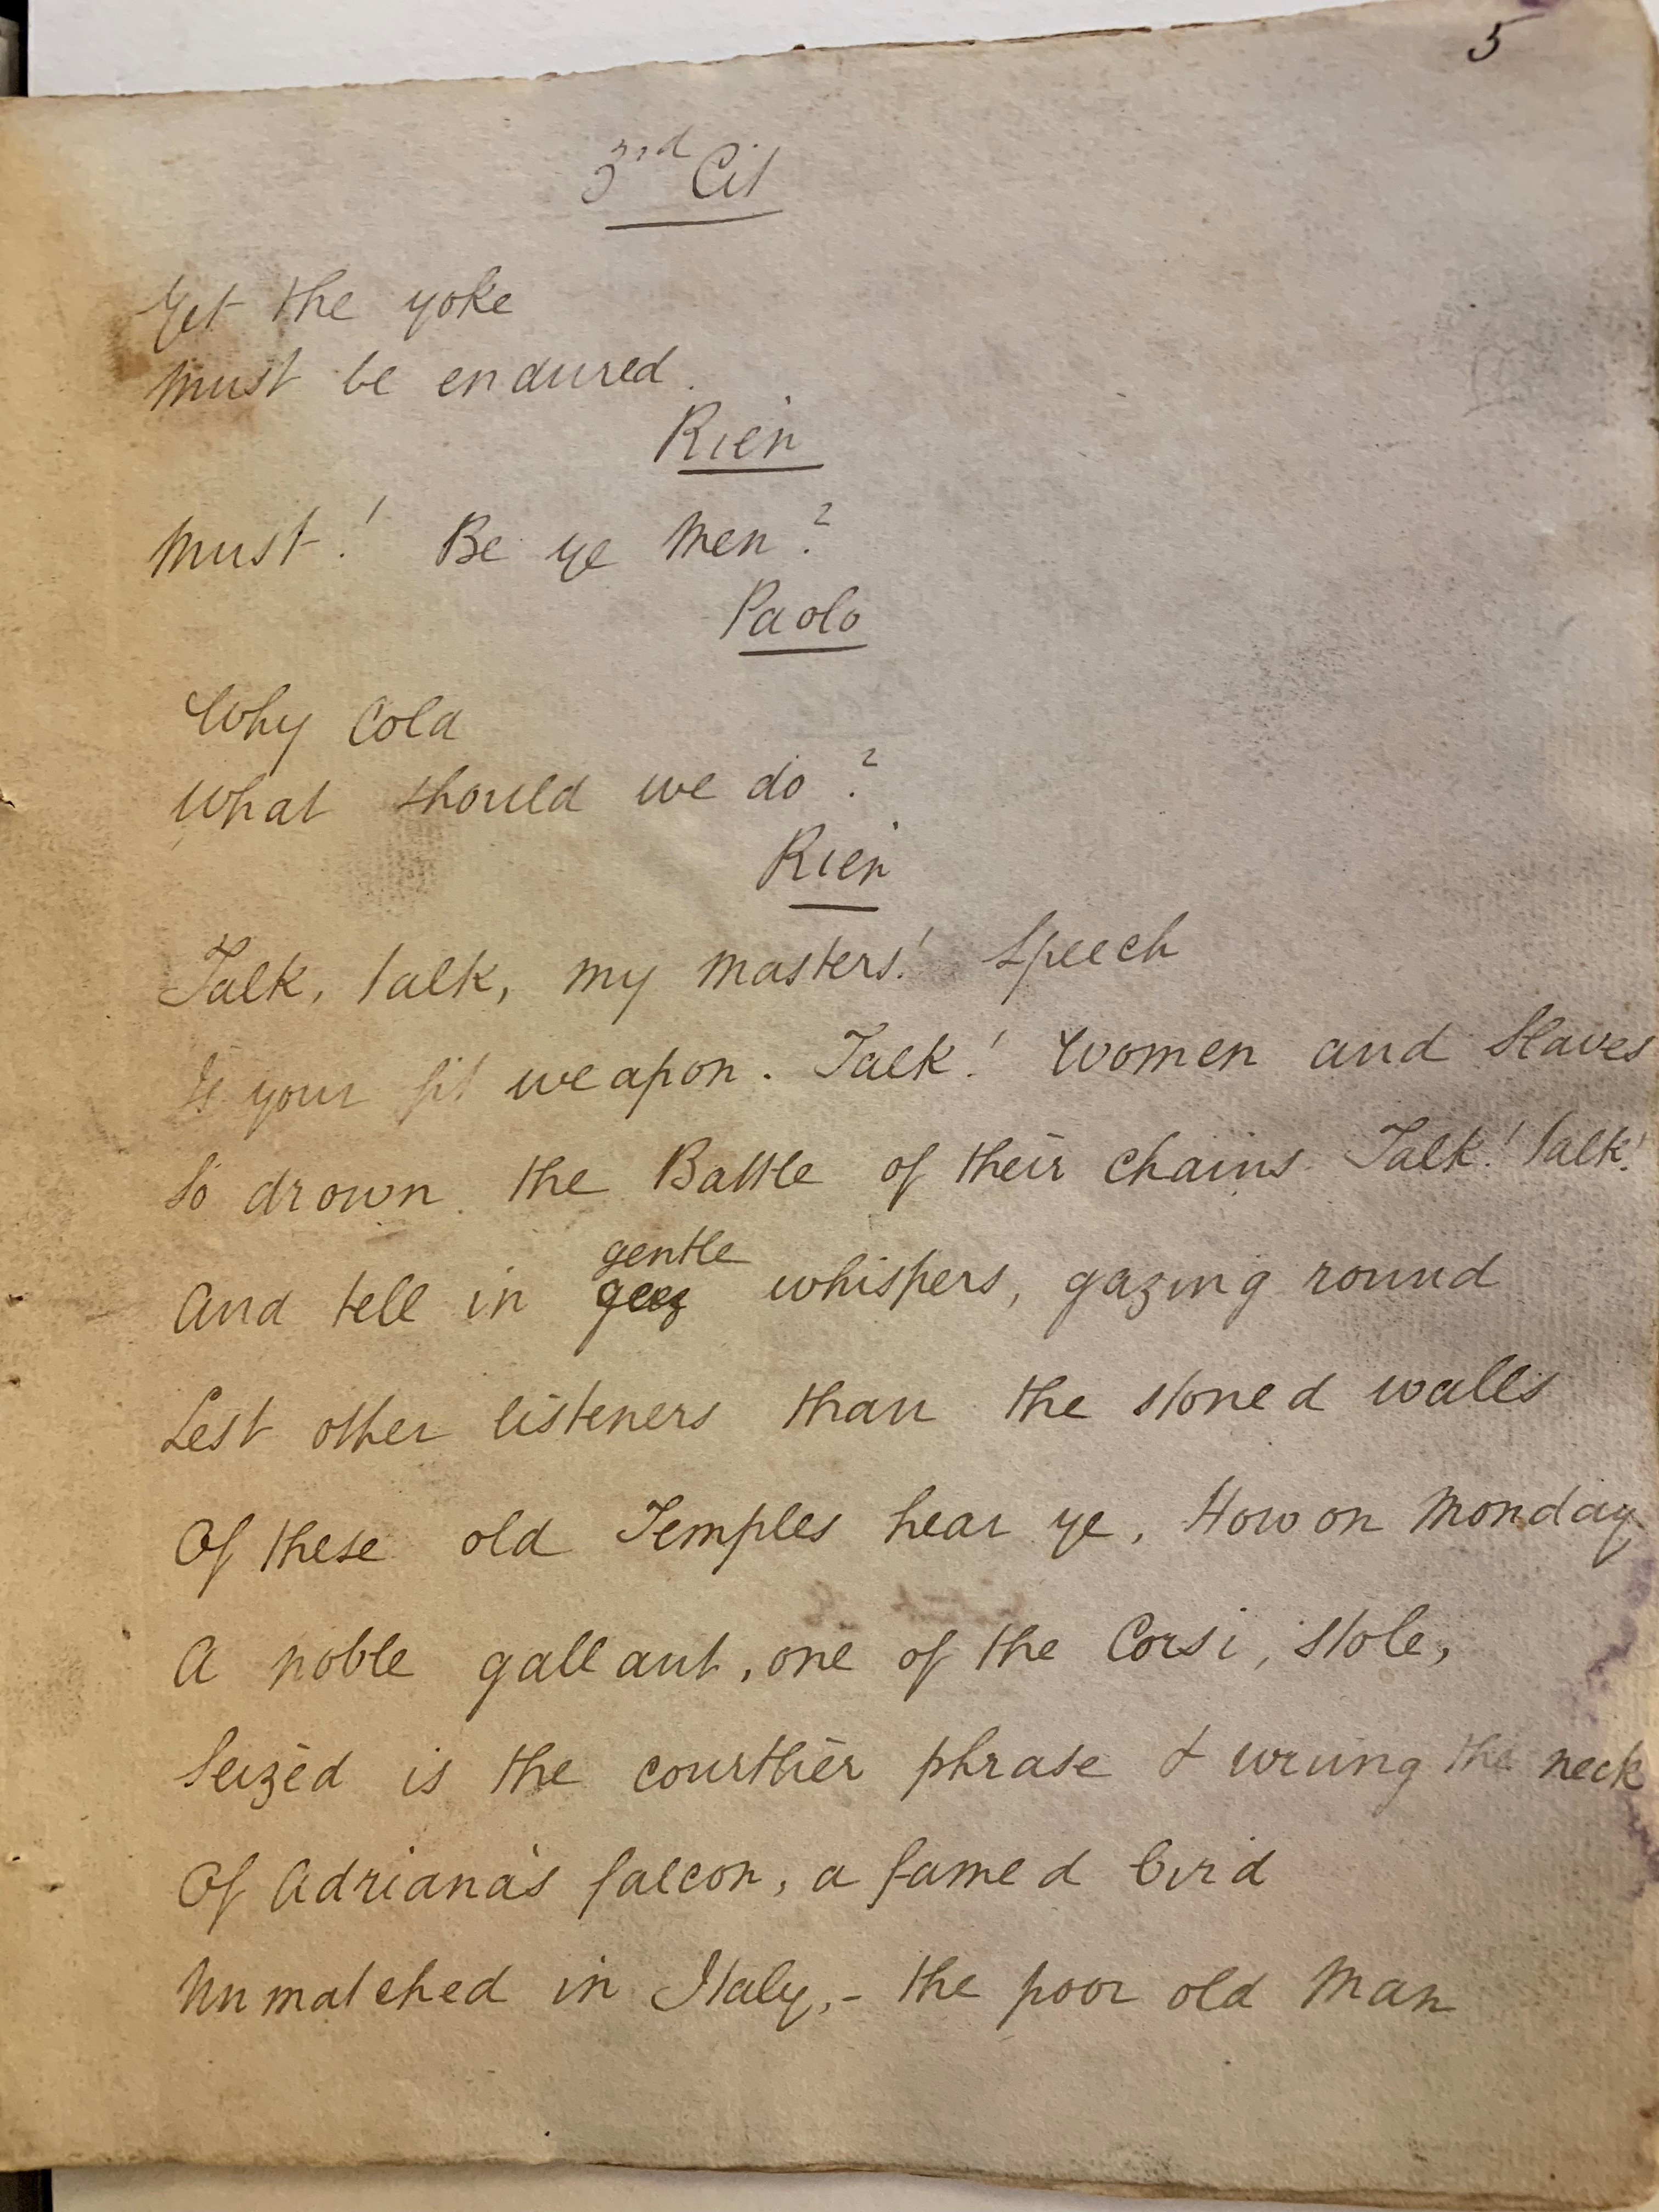 5
3rd Cit
Yet the yoke
Must be endured.
Rien
Must! Be ye Men?
Paolo
Why Cola
What should we do?
Rien
Talk, talk, my masters! Speech
Is your fit weapon. Talk! Women and Slaves
So drown the Battle of their chains. Talk! talk!
gentle
And tell in whispers, gazing round
Lest other listeners than the stoned walls
Of these old Temples hear ye, How on Monday
A noble gallant, one of the Corsi, stole,
Seized is the courtlier phrase & wrung the neck
Of Adriana's falcon, a famed bird
Unmatched in Italy, - the poor old Man